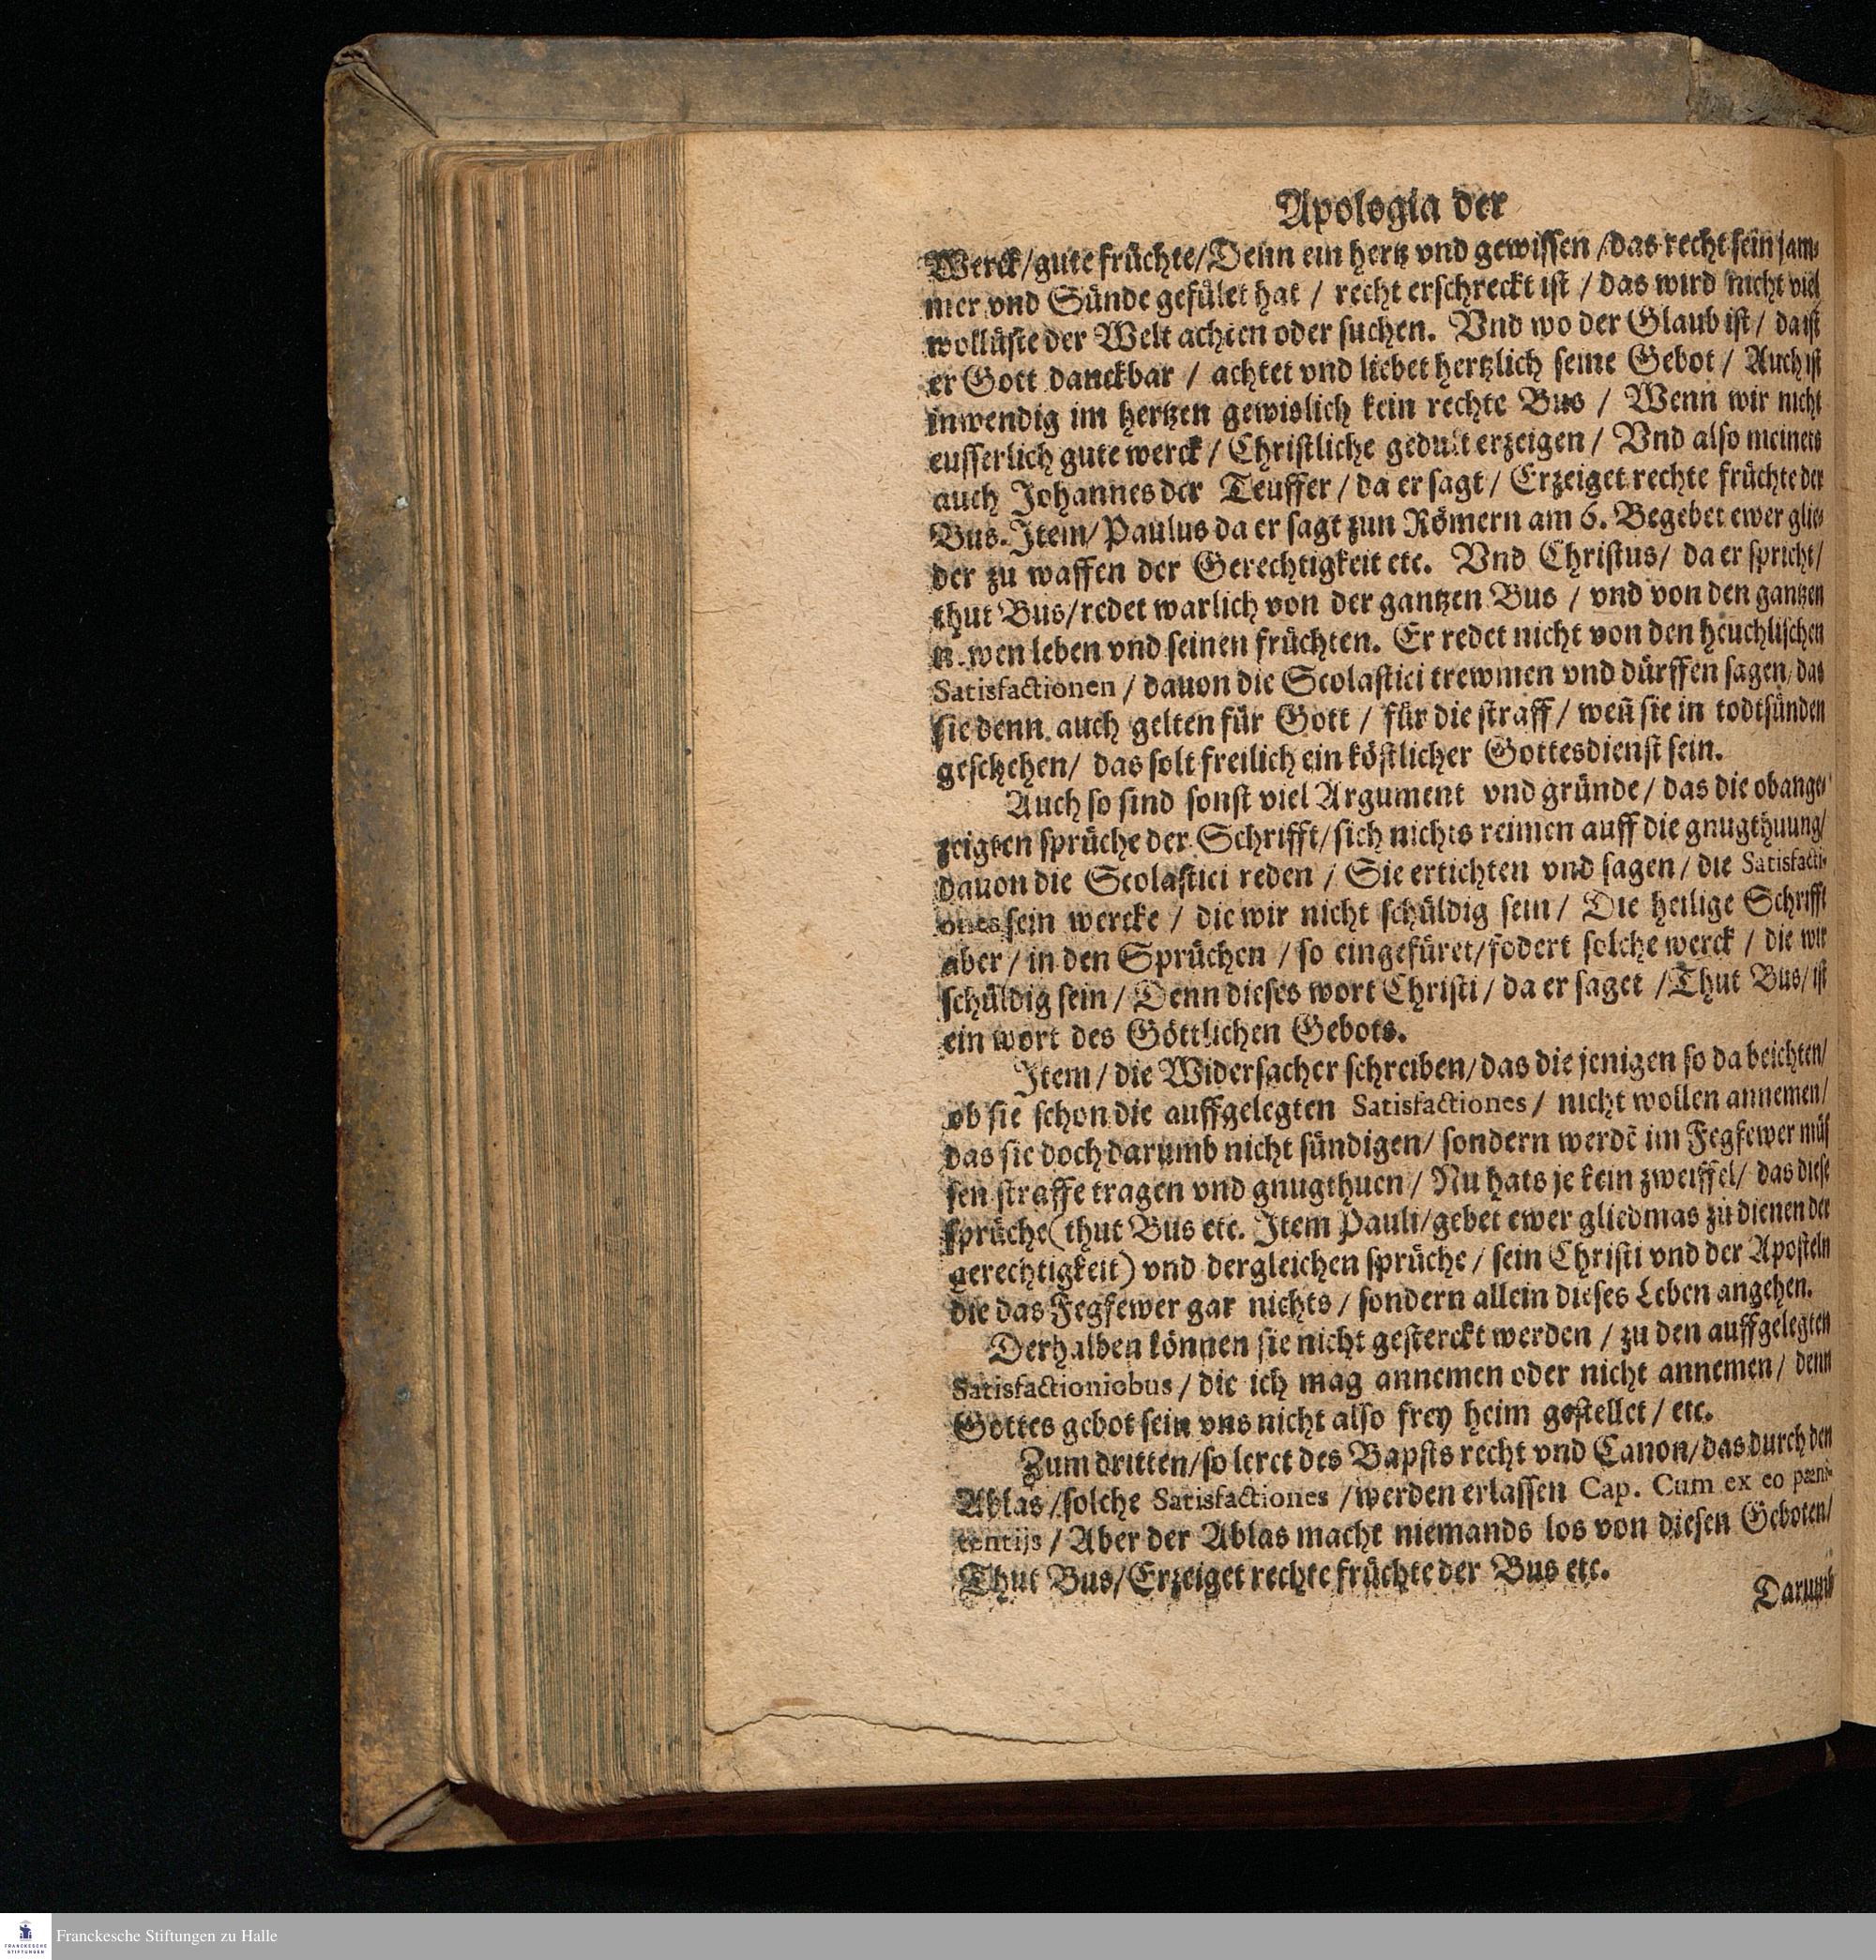 Apologia der
Werck/gute früchte/Denn ein hertz vnd gewissen /das recht sein jam-
mer vnd Sünde gefület hat / recht erschreckt ist / das wird nicht viel
wollüste der Welt achten oder suchen. Vnd wo der Glaub ist / da ist
er Gott danckbar / achtet vnd liebet hertzlich seine Gebot / Auch ist
inwendig im hertzen gewislich kein rechte Bus / Wenn wir nicht
eusserlich gute werck / Christliche gedult erzeigen / Vnd also meinets
auch Johannes der Teuffer / da er sagt / Erzeiget rechte früchte der
Bus. Item/ Paulus da er sagt zun Römern am 6. Begebet ewer glie-
der zu waffen der Gerechtigkeit etc. Vnd Christus/ da er spricht/
thut Bus/redet warlich von der gantzen Bus / vnd von den gantzen
n.wen leben vnd seinen früchten. Er redet nicht von den heuchlischen
Satisfactionen / dauon die Scolastici trewmen vnd dürffen sagen/ das
sie denn auch gelten für Gott / für die straff / weñ sie in todtsünden
geschehen/ das solt freilich ein köstlicher Gottesdienst sein.
Auch so sind sonst viel Argument vnd gründe / das die obange-
zeigten sprüche der Schrifft/sich nichts reimen auff die gnugthuung/
dauon die Scolastici reden / Sie ertichten vnd sagen / die Satisfacti-
ones sein wercke / die wir nicht schüldig sein / Die heilige Schrifft
aber / in den Sprüchen / so eingefüret/fodert solche werck / die wir
schüldig sein / Denn dieses wort Christi / da er saget /Thut Bus/ ist
ein wort des Göttlichen Gebots.
Item / die Widersacher schreiben/das die jenigen so da beichten/
ob sie schon die auffgelegten Satisfactiones / nicht wollen annemen/
das sie doch darumb nicht sündigen/ sondern werdẽ im Fegfewer müs
sen straffe tragen vnd gnugthuen / Nu hats je kein zweiffel/ das diese
sprüche (thut Bus etc. Item Pauli/gebet ewer gliedmas zu dienen der
gerechtigkeit) vnd dergleichen sprüche / sein Christi vnd der Aposteln
die das Fegfewer gar nichts / sondern allein dieses Leben angehen.
Derhalben können sie nicht gesterckt werden / zu den auffgelegten
Satisfactioniobus / die ich mag annemen oder nicht annemen / denn
Gottes gebot sein vns nicht also frey heim gestellet / etc.
Zum dritten/so leret des Bapsts recht vnd Canon/das durch den
Ablas /solche Satisfactiones /werden erlassen Cap. Cum ex eo pæni-
tentijs / Aber der Ablas macht niemands los von diesen Geboten/
Thut Bus/Erzeiget rechte früchte der Bus etc.
Darumb
FRANCKESCHE
STIFTUNGEN
Franckesche Stiftungen zu Halle